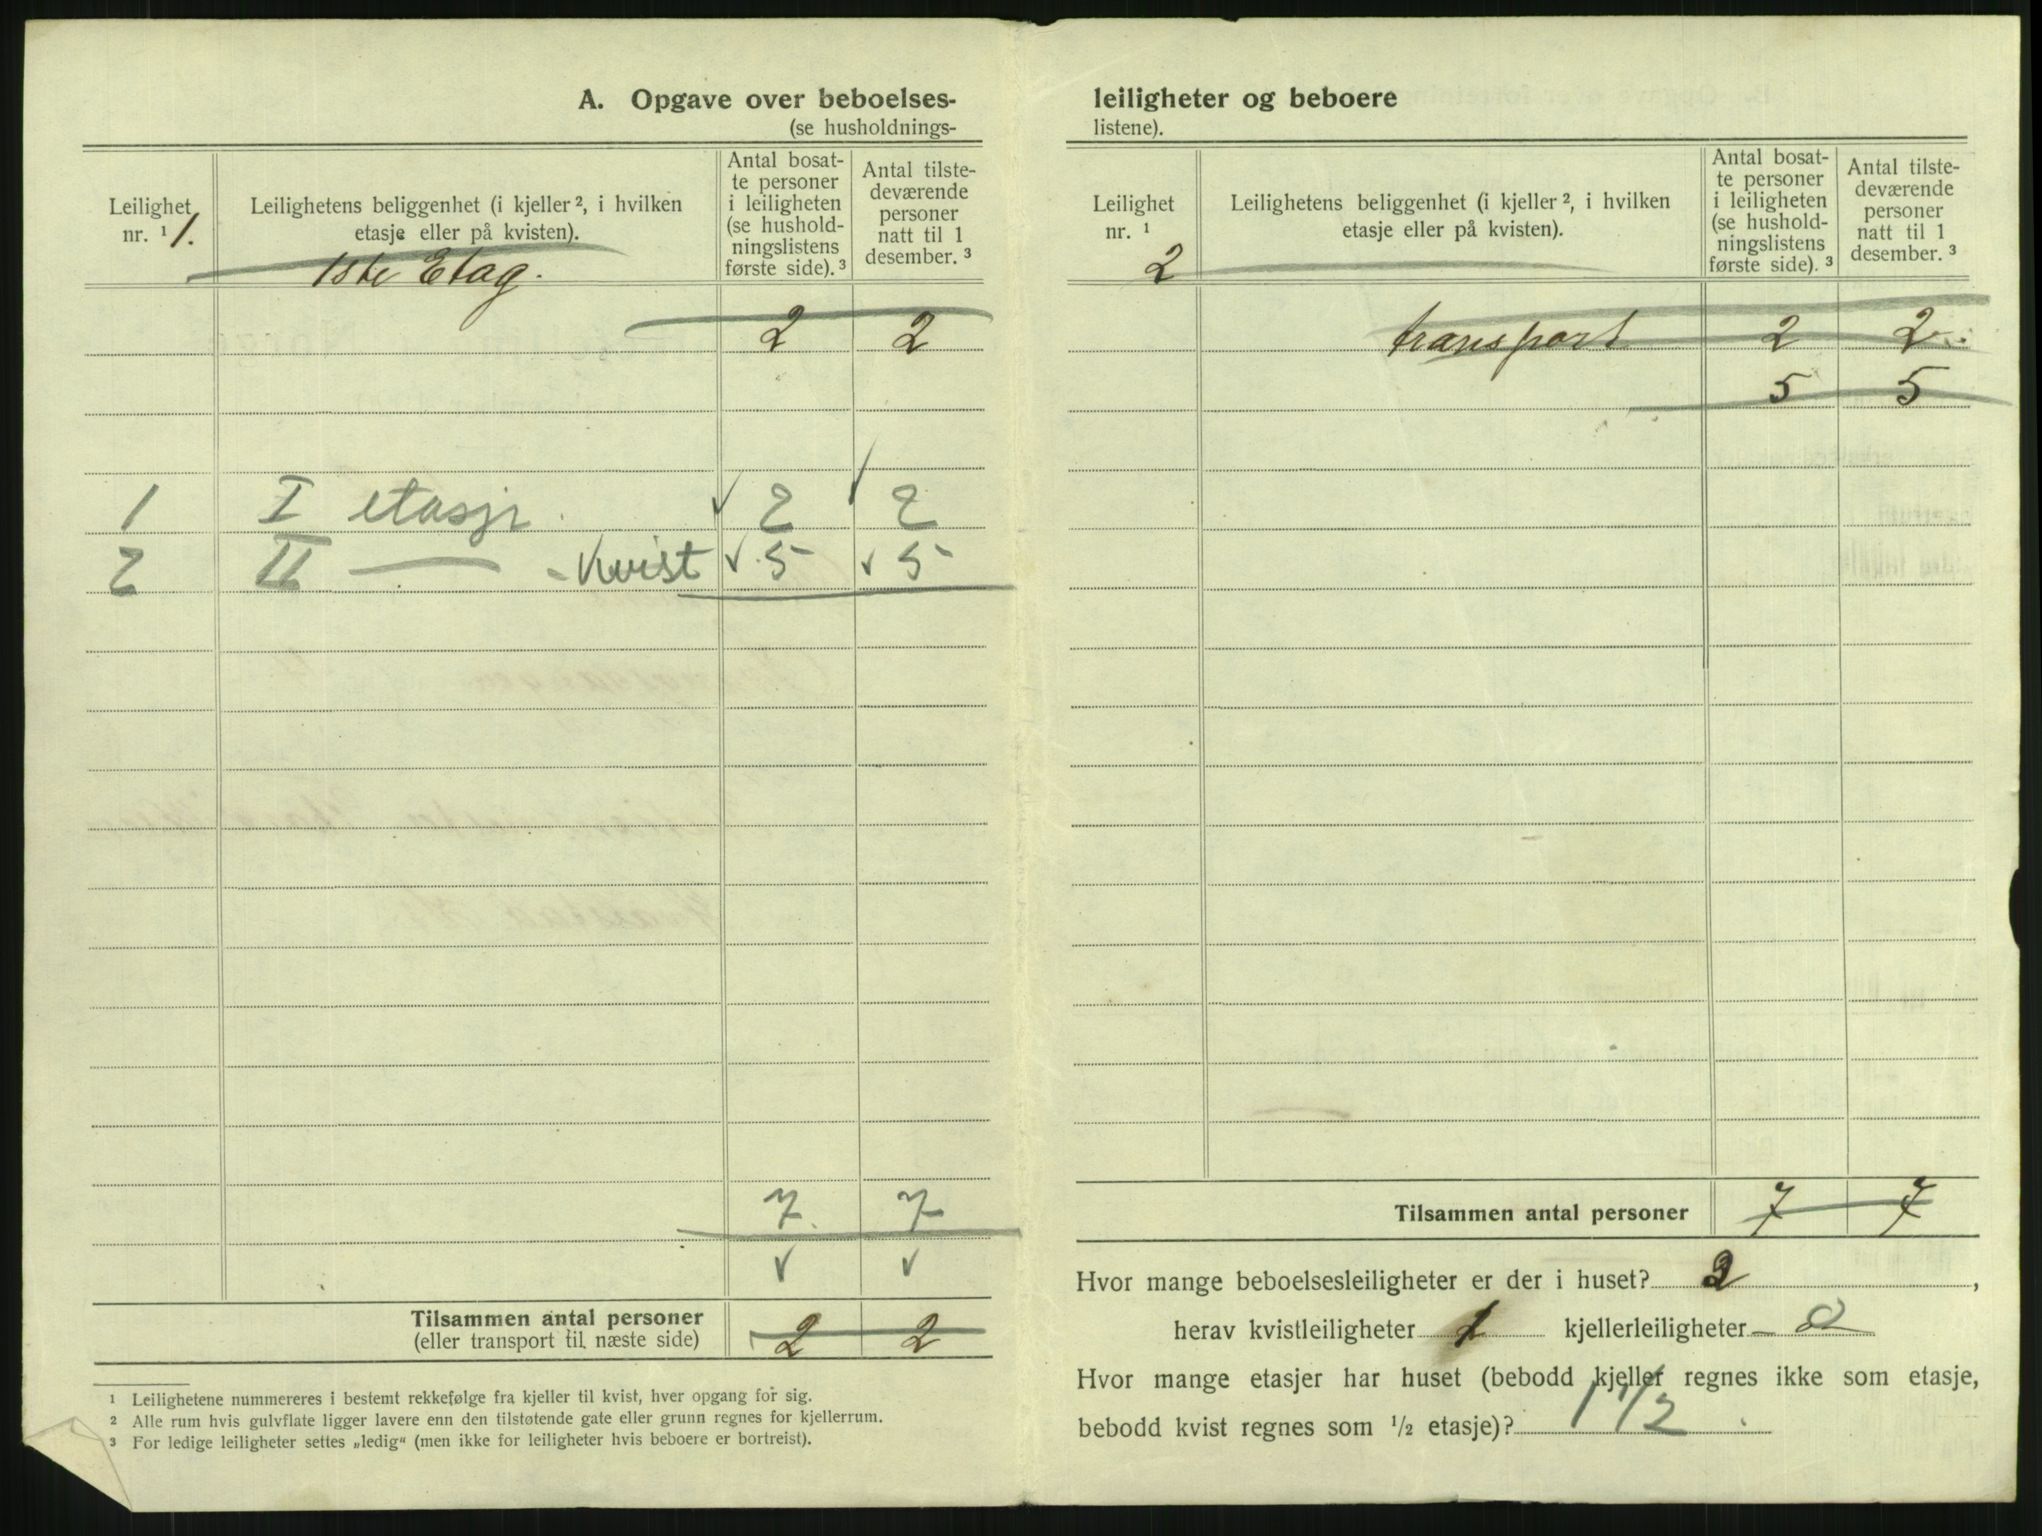 A. Opgave over beboelses-
(se husholdnings-
Leilighet nr. ¹ 1.
Leilighetens beliggenhet (i kjeller ², i hvilken
etasje eller på kvisten).
Antal bosat-
te personer
i leiligheten
(se hushold-
ningslistens
første side). ³
Antal tilste-
deværende
personer
natt til 1
desember. ³
1ste Etag.
2 2
1 I etasje 2 2
2 II — - Kvist 5 5
7 7
Tilsammen antal personer
(eller transport til næste side) 2 2
¹ Leilighetene nummereres i bestemt rekkefølge fra kjeller til kvist, hver opgang for sig.
² Alle rum hvis gulvflate ligger lavere enn den tilstøtende gate eller grunn regnes for kjellerrum.
³ For ledige leiligheter settes „ledig“ (men ikke for leiligheter hvis beboere er bortreist).
leiligheter og beboere
listene).
Leilighet
nr. ¹
2
Leilighetens beliggenhet (i kjeller ², i hvilken
etasje eller på kvisten).
Antal bosat-
te personer
i leiligheten
(se hushold-
ningslistens
første side). ³
Antal tilste-
deværende
personer
natt til 1
desember. ³
transport 2 2
5 5
Tilsammen antal personer 7 7
Hvor mange beboelsesleiligheter er der i huset? 2,
herav kvistleiligheter 1 kjellerleiligheter – 0
Hvor mange etasjer har huset (bebodd kjeller regnes ikke som etasje,
bebodd kvist regnes som ½ etasje)? 1 1/2